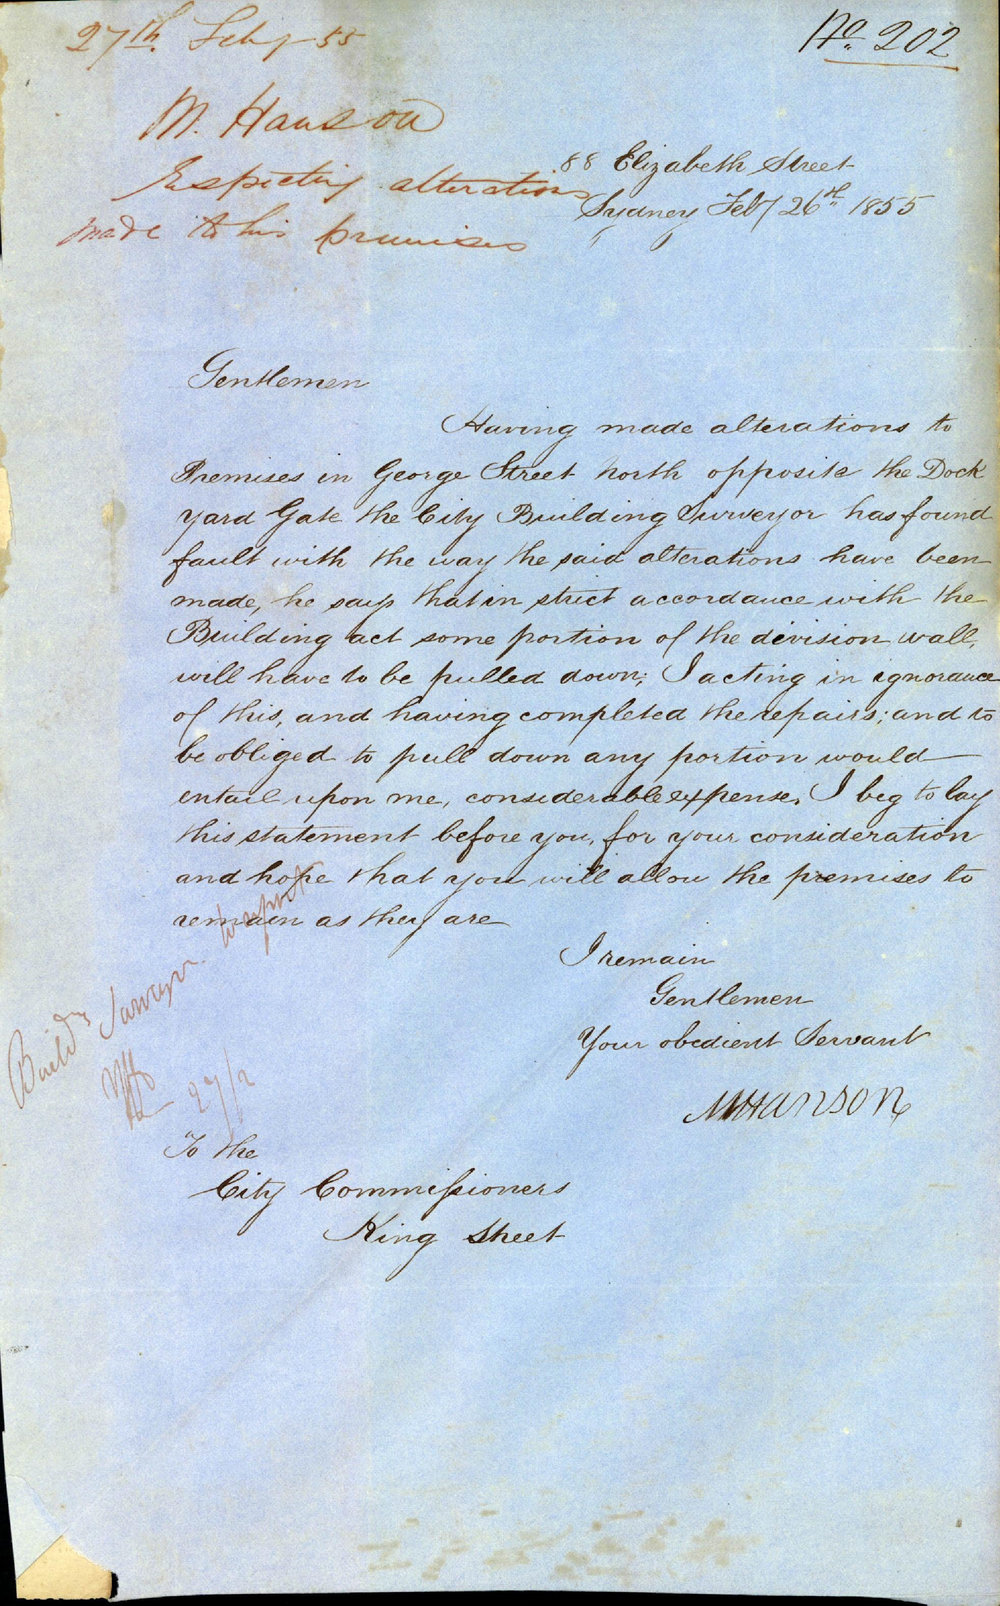 27th Feby 55
No. 202
M. Hanson
Respecting alterations
made to his premises
88 Elizabeth Street
Sydney Feby 26th 1855
Gentlemen
Having made alterations to
Premises in George Street North opposite the Dock
yard Gate the City Building Surveyor has found
fault with the way the said alterations have been
made, he says that in strict accordance with the
Building act some portion of the division wall,
will have to be pulled down; I acting in ignorance
of this, and having completed the repairs; and to
be obliged to pull down any portion would
entail upon me, considerable expense, I beg to lay
this statement before you, for your consideration
and hope that you will allow the premises to
remain as they are
I remain
Gentlemen
Your obedient Servant
M Hanson
Build^g Surveyor to report
27/2
To the
City Commissioners
King Street